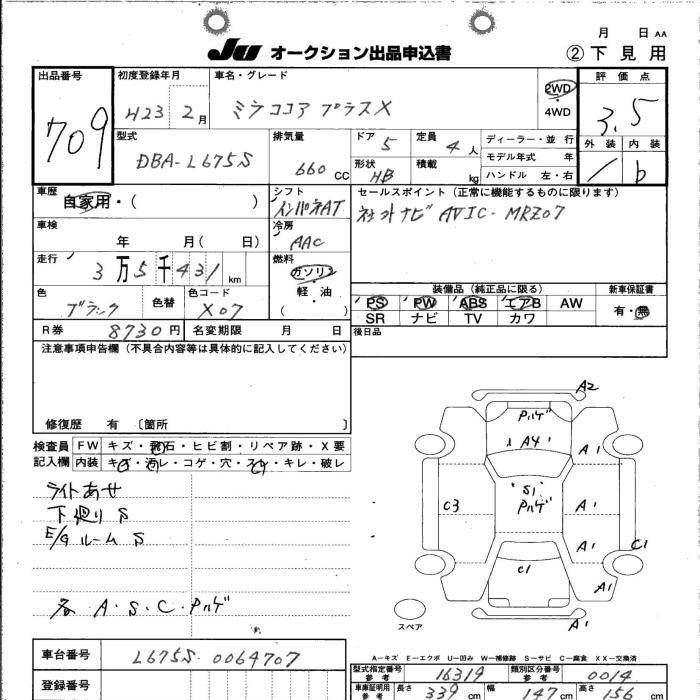 月 日 AA
JU オークション出品申込書 ②下見用
出品番号 初度登録年月 車名・グレード 2WD 4WD 評価点
709 H23 2月 ミラココア プラスX 3.5
型式 排気量 ドア 5 定員 4人 ディーラー・並行 外装 内装
DBA-L675S 660 CC 形状 HB 積載 kg モデル年式 年 b
ハンドル 左・右
車歴 シフト セールスポイント(正常に機能するものに限ります)
自家用・( ) インパネAT 社外ナビ AVIC-MRZ07
車検 冷房
年 月( 日) AAC
走行 燃料
3万5千431km ガソリン 装備品(純正品に限る) 新車保証書
色 色替 色コード 軽・油 PS PW ABS エアB AW 有・無
ブラック X07 ( ) SR ナビ TV カワ
R券 8730円 名変期限 月 日 後日品
注意事項申告欄(不具合内容等は具体的に記入してください)
修復歴 有 〔箇所 〕
検査員 FW キズ・飛石・ヒビ割・リペア跡・X要
記入欄 内装 キズ・汚レ・コゲ・穴・スレ・キレ・破レ
ライトあせ
下廻り S
E/Gルーム S
各 A・S・C・Pハゲ
A2
Pハゲ
A4
A1
S1
Pハゲ
C3
A1
A1
C1
C1
A1
A1
スペア
A=キズ E=エクボ U=凹み W=補修跡 S=サビ C=腐食 XX=交換済
車台番号 L675S-0064707
型式指定番号 参考 16319 類別区分番号 参考 0014
登録番号
車庫証明用 参考 長さ 339cm 幅 147cm 高さ 156cm